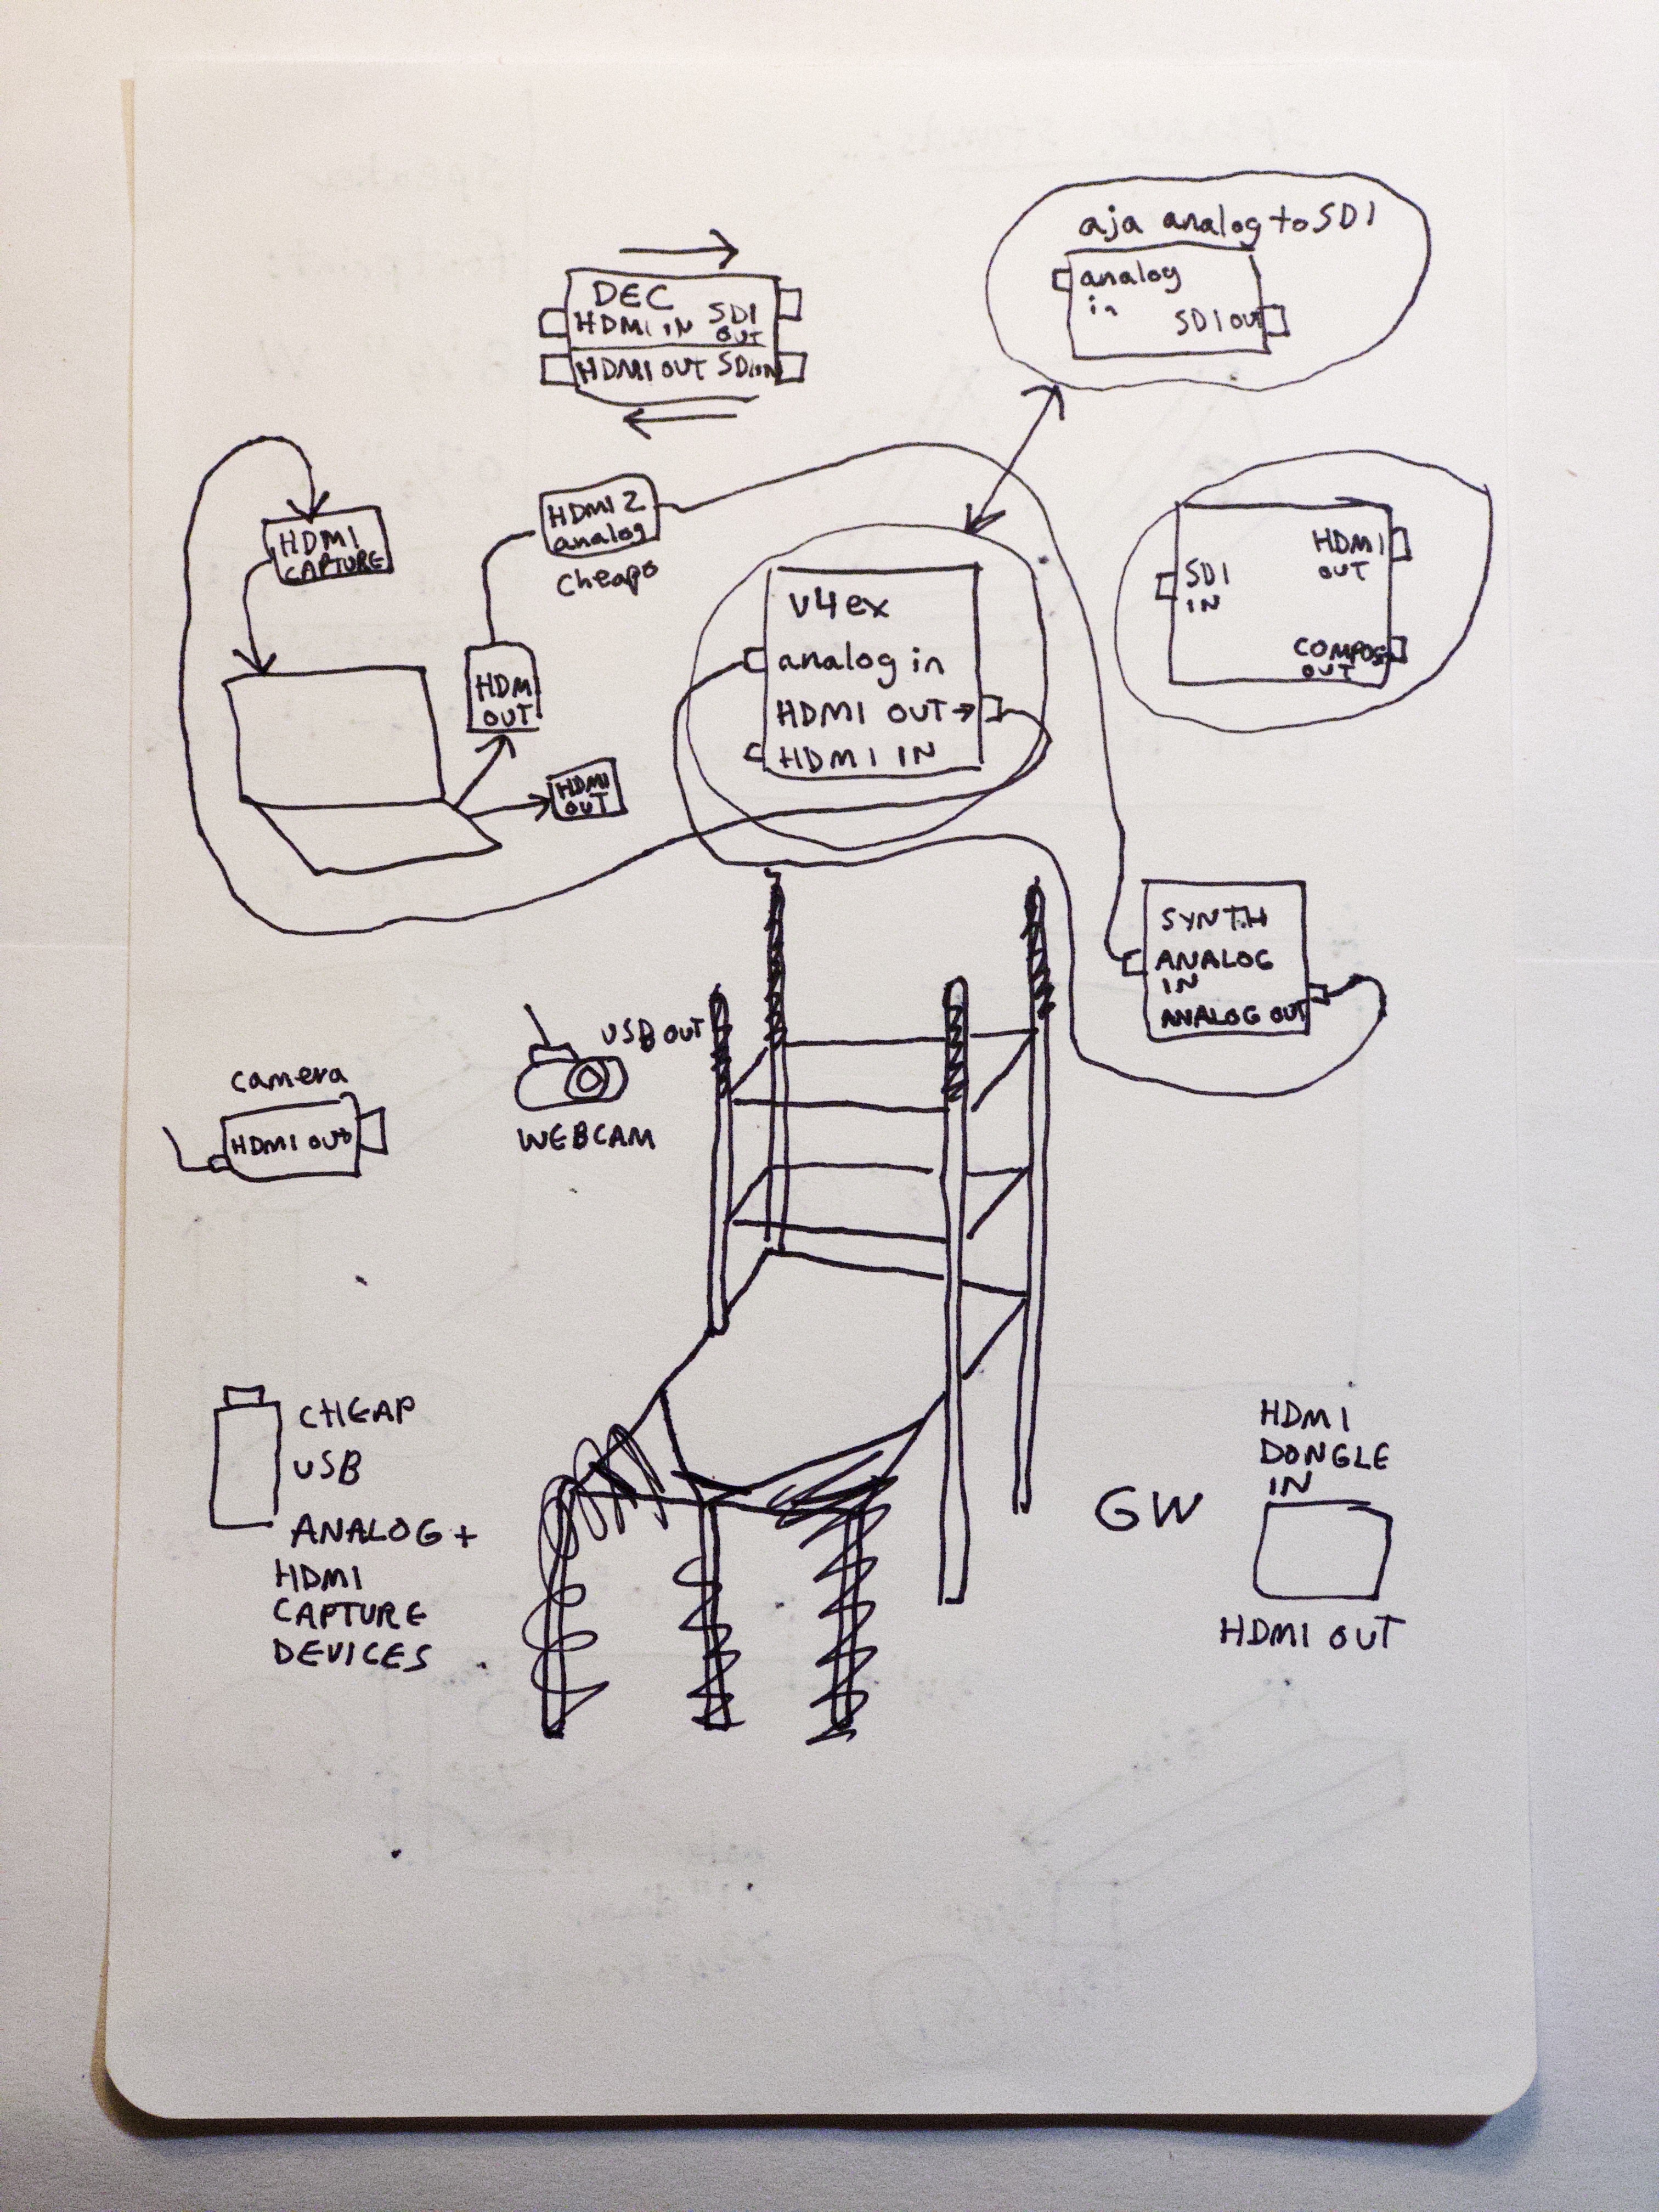 aja analog to SDI
analog
in
SDI OUT
DEC
HDMI IN SDI
OUT
HDMI OUT SDI IN
HDMI
CAPTURE
HDMI 2
analog
cheapo
HDMI
OUT
SDI
IN
COMPOS
OUT
v4ex
analog in
HDMI OUT →
HDMI IN
HDM
OUT
HDMI
OUT
SYNTH
ANALOG
IN
ANALOG OUT
USB OUT
WEBCAM
camera
HDMI OUT
CHEAP
USB
ANALOG +
HDMI
CAPTURE
DEVICES
GW
HDMI
DONGLE
IN
HDMI OUT